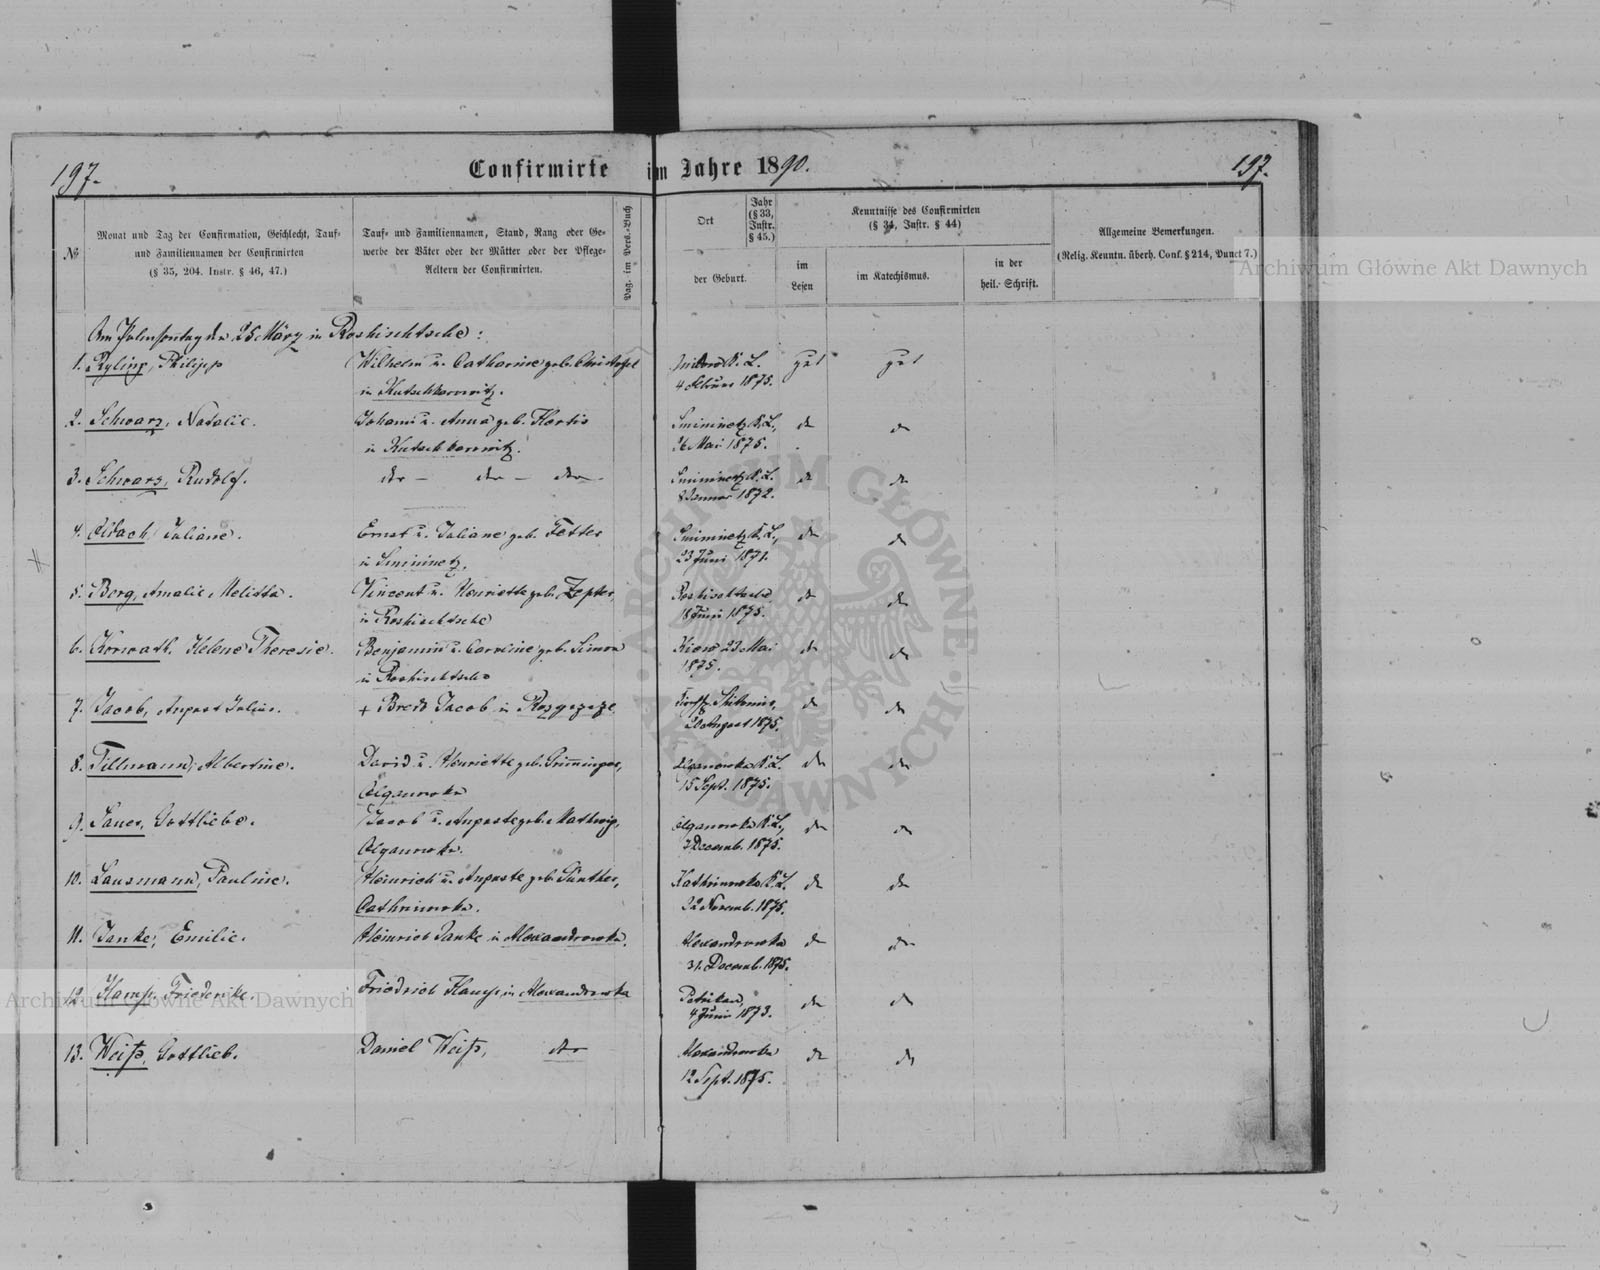 197.
Confirmirte im Jahre 1890.
197.
№
Monat und Tag der Confirmation, Geschlecht, Tauf-
und Familiennamen der Confirmirten
(§ 35, 204. Instr. § 46, 47.)
Tauf- und Familiennamen, Stand, Rang oder Ge-
werbe der Väter oder der Mütter oder der Pflege-
Aeltern der Confirmirten.
Pag. im Pers.-Buch
Ort
Jahr
(§ 33,
Instr.
§ 45.)
der Geburt.
Kenntnisse des Confirmirten
(§ 34, Instr. § 44)
im
Lesen
im Katechismus.
in der
heil. Schrift.
Allgemeine Bemerkungen.
(Relig. Kenntn. überh. Conf. § 214, Punct 7.)
Archiwum Główne Akt Dawnych
Am Palmsonntag den 25 März in Roshischtsche:
1. Ryling, Philipp
Wilhelm u. Catharine geb.
in
K. L.
4 Februar 1875.
gut
gut
2. Schwarz, Natalie.
Johann u. Anna geb.
in
K. L.,
26 Mai 1875.
do
do
3. Schwarz, Rudolf.
do — do — do
K. L.
8 Januar 1872.
do
do
4. Juliane.
Ernst u. Juliane geb. Fetter
in Smininetz.
Smininetz K. L.,
23 Juni 1871.
do
do
5. Berg, Amalie Melitta.
Vincent u. Henriette geb. Zepter,
in Roshischtsche
Roshischtsche
18 Juni 1875.
do
do
6. Helene Theresie.
Benjamin u. Caroline geb. Simon
in Roshischtsche
Kiew 23 Mai
1875.
do
do
7. Jacob, August Julius.
+ Jacob in
20 August 1875.
do
do
8. Tillmann, Albertine.
David u. Henriette geb.
Olganowka
Olganowka K. L.
15 Sept. 1875.
do
do
9. Sauer, Gottliebe.
Jacob u. Auguste geb.
Olganowka.
Olganowka K. L.,
3 Decemb. 1875.
do
do
10. Lausmann, Pauline.
Heinrich u. Auguste geb. Günther,
Cathrinowka.
Kathrinowka K. L.
22 Novemb. 1875.
do
do
11. Janke, Emilie.
Heinrich Janke in Alexandrowka.
Alexandrowka
31. Decemb. 1875.
do
do
12. Friederike.
Friedrich in Alexandrowka
Petrikau,
4 Juni 1873.
do
do
13. Weiß, Gottlieb.
Daniel Weiß, do
Alexandrowka
12 Sept. 1875.
do
do
Archiwum Główne Akt Dawnych
ARCHIWUM GŁÓWNE AKT DAWNYCH